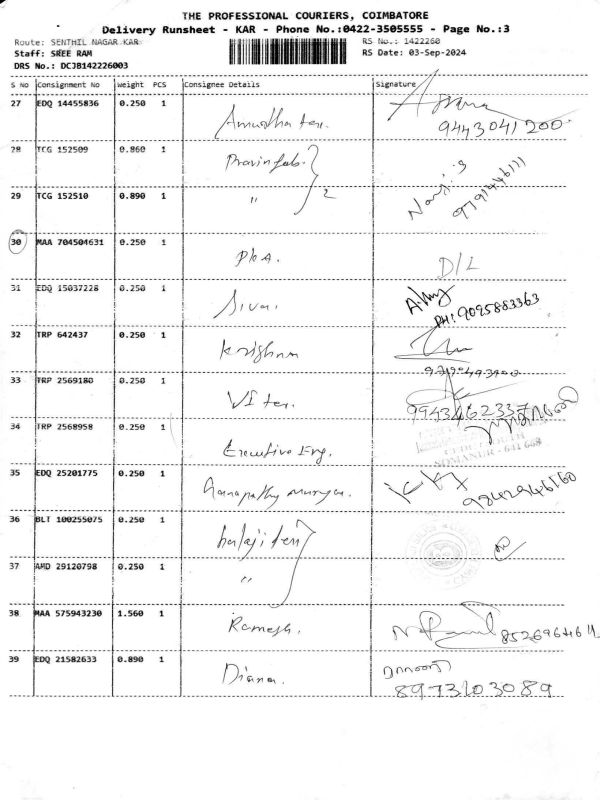 THE PROFESSIONAL COURIERS, COIMBATORE
Delivery Runsheet - KAR - Phone No.:0422-3505555 - Page No.:3
Route: SENTHIL NAGAR KAR
RS No.: 1422260
Staff: SREE RAM
RS Date: 03-Sep-2024
DRS No.: DCJB142226003
S No Consignment No Weight PCS Consignee Details Signature
27 EDQ 14455836 0.250 1
9443041200
28 TCG 152509 0.860 1
9791446111
29 TCG 152510 0.890 1 " 2
30 MAA 704504631 0.250 1 D/L
31 EDQ 15037228 0.250 1 Siva.
PH: 9095883363
32 TRP 642437 0.250 1 Krishna
33 TRP 2569180 0.250 1 VI tex.
34 TRP 2568958 0.250 1 Executive Eng.
SOMANUR - 641 668
35 EDQ 25201775 0.250 1 Ganapathy Murugan.
9842946160
36 BLT 100255075 0.250 1 balaji tex
37 AMD 29120798 0.250 1 "
38 MAA 575943230 1.560 1 Ramesh.
39 EDQ 21582633 0.890 1 Diana.
8973103089